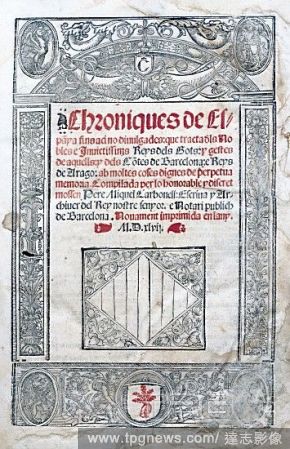 Chroniques de Es-
paya fins aci no divulgades: que tracta dls No-
bles e Invictissims Reys dels Gots: y gestes
de aquells: y dels Cõtes de Barcelona: e Reys
de Arago: ab moltes coses dignes de perpetua
memoria. Compilada per lo honorable y discret
mossen Pere Miquel Carbonell: Escriva y Ar-
chiver del Rey nostre senyor. e Notari publich
de Barcelona. Novament imprimida en lany
M.D.xlvij.
www.tpgnews.com/ 達志影像